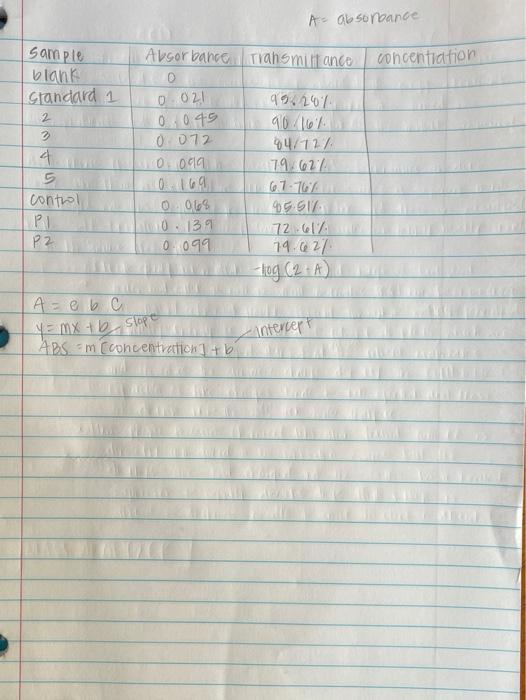 A = absorbance
Sample Absorbance Transmittance concentration
blank 0
Standard 1 0.021 95.28%
2 0.045 90.16%
3 0.072 84.72%
4 0.099 79.62%
5 0.169 67.76%
control 0.068 85.51%
P1 0.139 72.61%
P2 0.099 79.62%
-log (2-A)
A = e b C
y = mx + b slope
intercept
ABS = m [concentration] + b